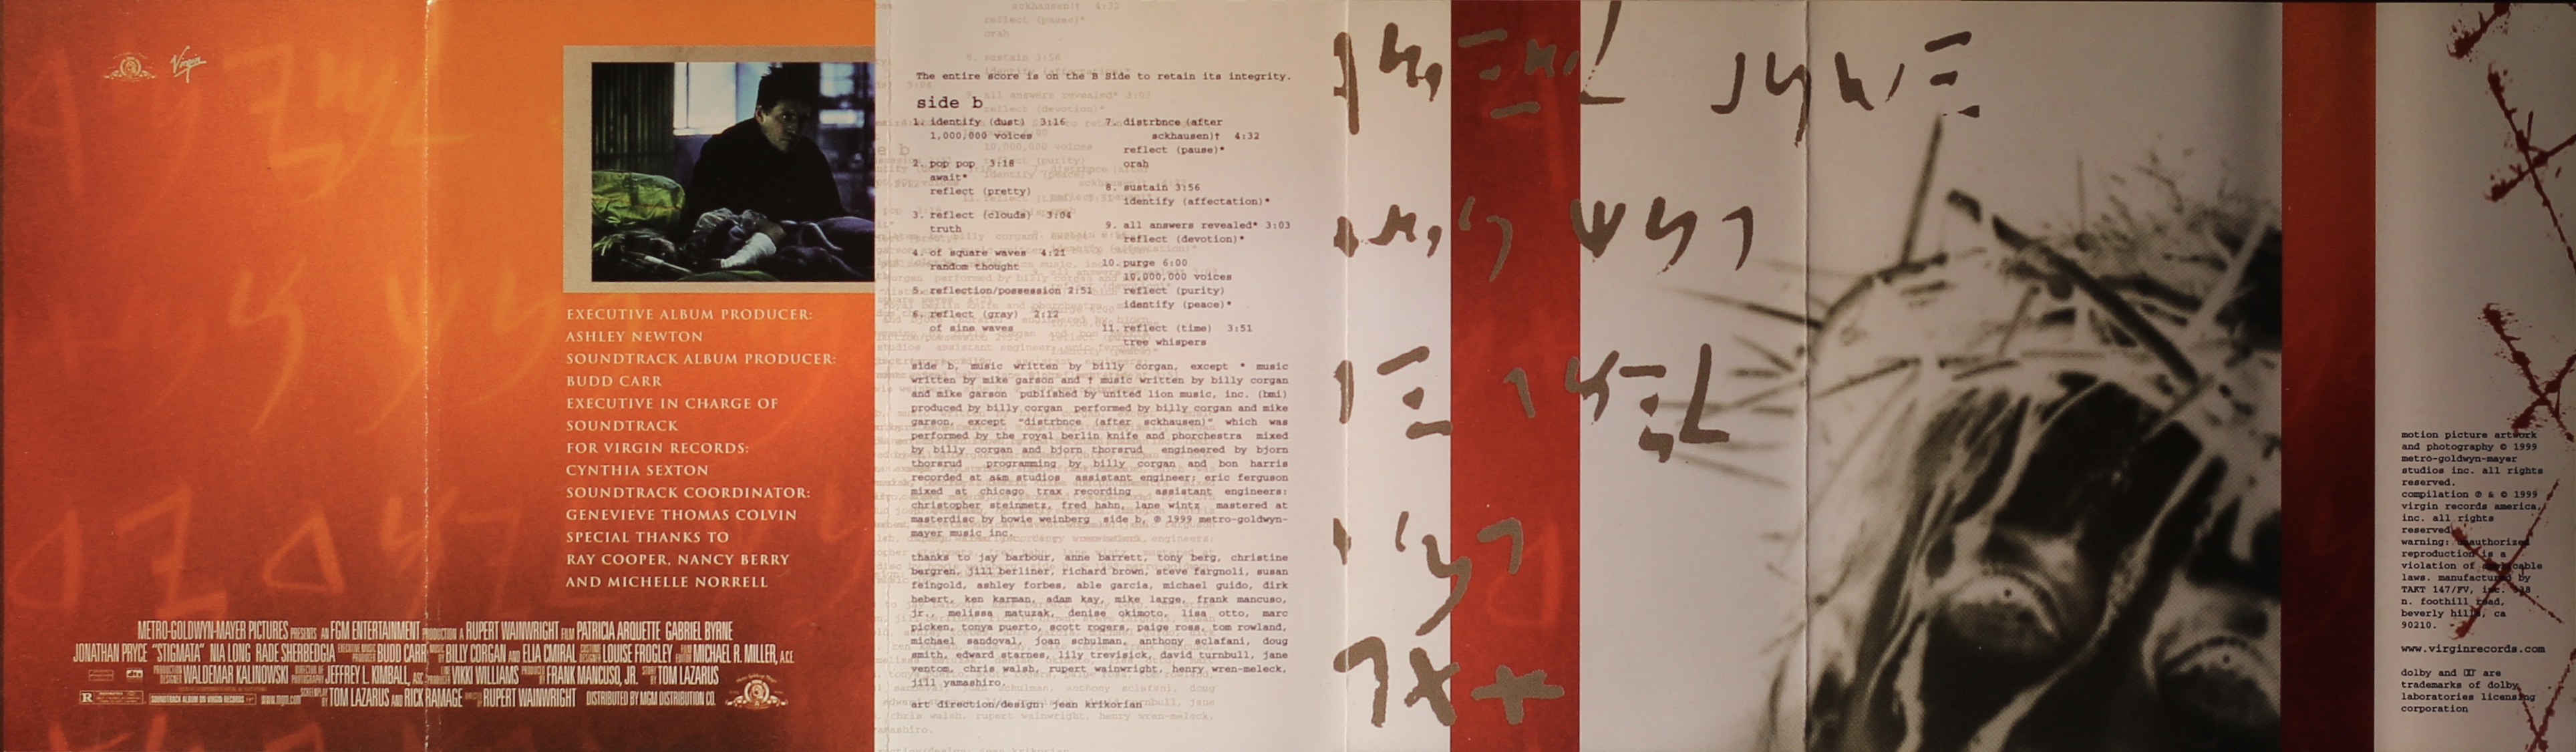 Virgin
EXECUTIVE ALBUM PRODUCER:
ASHLEY NEWTON
SOUNDTRACK ALBUM PRODUCER:
BUDD CARR
EXECUTIVE IN CHARGE OF
SOUNDTRACK
FOR VIRGIN RECORDS:
CYNTHIA SEXTON
SOUNDTRACK COORDINATOR:
GENEVIEVE THOMAS COLVIN
SPECIAL THANKS TO
RAY COOPER, NANCY BERRY
AND MICHELLE NORRELL
METRO-GOLDWYN-MAYER PICTURES PRESENTS AN FGM ENTERTAINMENT PRODUCTION A RUPERT WAINWRIGHT FILM PATRICIA ARQUETTE GABRIEL BYRNE
JONATHAN PRYCE "STIGMATA" NIA LONG RADE SHERBEDGIA EXECUTIVE MUSIC PRODUCER BUDD CARR MUSIC BY BILLY CORGAN AND ELIA CMIRAL COSTUME DESIGNER LOUISE FROGLEY FILM EDITOR MICHAEL R. MILLER, A.C.E.
PRODUCTION DESIGNER WALDEMAR KALINOWSKI DIRECTOR OF PHOTOGRAPHY JEFFREY L. KIMBALL, ASC PRODUCER VIKKI WILLIAMS PRODUCED BY FRANK MANCUSO, JR. STORY BY TOM LAZARUS
R SOUNDTRACK ALBUM ON VIRGIN RECORDS www.mgm.com SCREENPLAY BY TOM LAZARUS AND RICK RAMAGE DIRECTED BY RUPERT WAINWRIGHT DISTRIBUTED BY MGM DISTRIBUTION CO.
The entire score is on the B Side to retain its integrity.
side b
1. identify (dust) 3:16
1,000,000 voices
2. pop pop 3:18
await*
reflect (pretty)
3. reflect (clouds) 3:04
truth
4. of square waves 4:21
random thought
5. reflection/possession 2:51
6. reflect (gray) 2:12
of sine waves
7. distrbnce (after
sckhausen)† 4:32
reflect (pause)*
orah
8. sustain 3:56
identify (affectation)*
9. all answers revealed* 3:03
reflect (devotion)*
10. purge 6:00
10,000,000 voices
reflect (purity)
identify (peace)*
11. reflect (time) 3:51
tree whispers
side b, music written by billy corgan, except * music
written by mike garson and † music written by billy corgan
and mike garson published by united lion music, inc. (bmi)
produced by billy corgan performed by billy corgan and mike
garson, except "distrbnce (after sckhausen)" which was
performed by the royal berlin knife and phorchestra mixed
by billy corgan and bjorn thorsrud engineered by bjorn
thorsrud programming by billy corgan and bon harris
recorded at a&m studios assistant engineer; eric ferguson
mixed at chicago trax recording assistant engineers:
christopher steinmetz, fred hahn, lane wintz mastered at
masterdisc by howie weinberg side b, ℗ 1999 metro-goldwyn-
mayer music inc.
thanks to jay barbour, anne barrett, tony berg, christine
bergren, jill berliner, richard brown, steve fargnoli, susan
feingold, ashley forbes, able garcia, michael guido, dirk
hebert, ken karman, adam kay, mike large, frank mancuso,
jr., melissa matuzak, denise okimoto, lisa otto, marc
picken, tonya puerto, scott rogers, paige rosa, tom rowland,
michael sandoval, joan schulman, anthony sclafani, doug
smith, edward starnes, lily trevisick, david turnbull, jane
ventom, chris walsh, rupert wainwright, henry wren-meleck,
jill yamashiro.
art direction/design: jean krikorian
motion picture artwork
and photography © 1999
metro-goldwyn-mayer
studios inc. all rights
reserved.
compilation ℗ & © 1999
virgin records america,
inc. all rights
reserved.
warning: unauthorized
reproduction is a
violation of applicable
laws. manufactured by
TAKT 147/FV, inc. 338
n. foothill road,
beverly hills, ca
90210.
www.virginrecords.com
dolby and are
trademarks of dolby
laboratories licensing
corporation